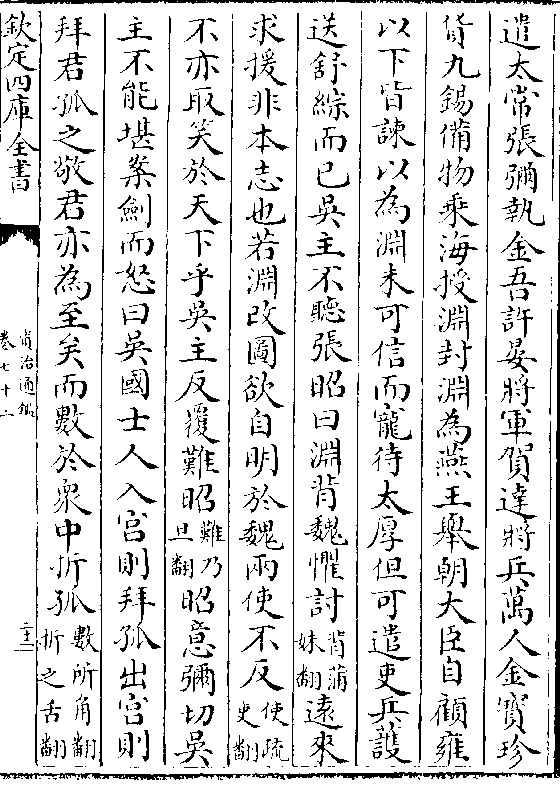 遣太常張彌執金吾許晏將軍賀達將兵萬人金寶珍
貨九錫備物乘海授淵封淵為燕王舉朝大臣自顧雍
以下皆諫以為淵未可信而寵待太厚但可遣吏兵護
送舒綜而已吳主不聽張昭曰淵背魏懼討背蒲妹翻遠來
求援非本志也若淵改圖欲自明於魏兩使不反使疏吏翻
不亦取笑於天下乎吳主反覆難昭難乃旦翻昭意彌切吳
主不能堪案劍而怒曰吳國士人入宮則拜孤出宮則
拜君孤之敬君亦為至矣而數於衆中折孤數所角翻折之舌翻
欽定四庫全書
資治通鑑
卷七十二
二十二